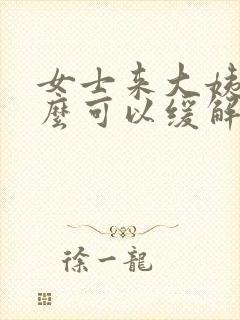 女士来大姨
麼可以缓解
徐一龍